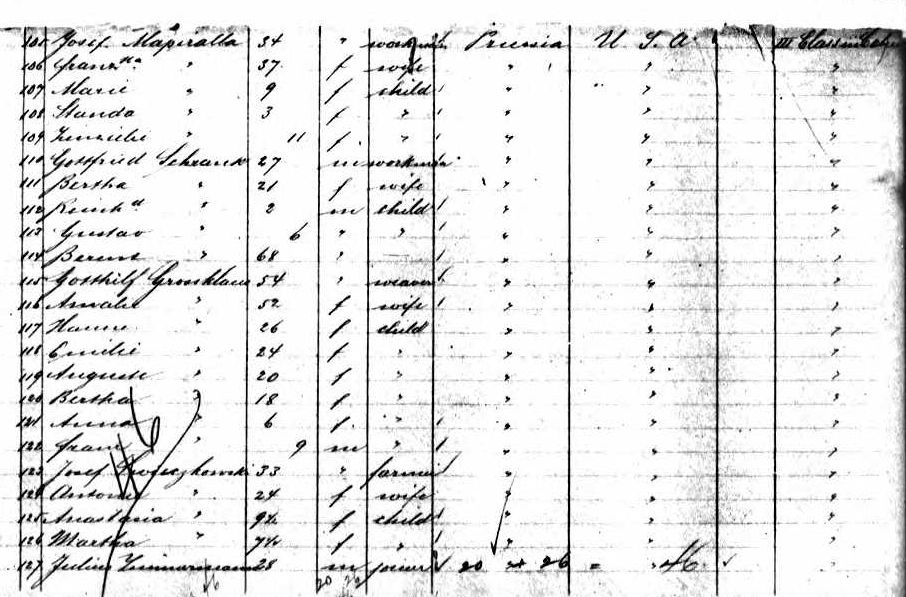 105 Josef Mapiralla 34 " workman Prussia U. S. A. III Class
106 Franz " 37 f wife " " "
107 Marie " 9 f child " " "
108 Standa " 3 f " " " "
109 " 11 f " " " "
110 Gottfried Schrank 27 m workman " " "
111 Bertha " 21 f wife " " "
112 Reinhd " 2 m child " " "
113 Gustav " 6 " " " " "
114 Berent " 68 " " " "
115 Gotthilf Grossklaus 54 " weaver " " "
116 Amalie " 52 f wife " " "
117 Hanne " 26 f child " " "
118 Emilie " 24 f " " " "
119 Auguste " 20 f " " " "
120 Bertha " 18 f " " " "
121 Anna " 6 f " " " "
122 Franz " 9 m " " " "
123 Josef 33 " farmer " " "
124 Antonie " 24 f wife " " "
125 Anastasia " f child " " "
126 Martha " f " " " "
127 Julius Zimmermann 28 m joiner 20 26 = 46